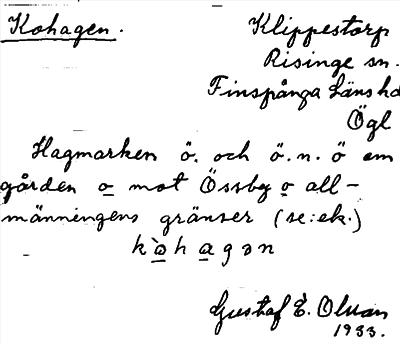 Kohagen.
Klippestorp
Risinge sn.
Finspånga Länshd
Ögl
Hagmarken ö. och ö.n.ö om
gården o mot Össby o all-
männingens gränser (se: ek.)
kòhagən
Gustaf E. Olson
1933.